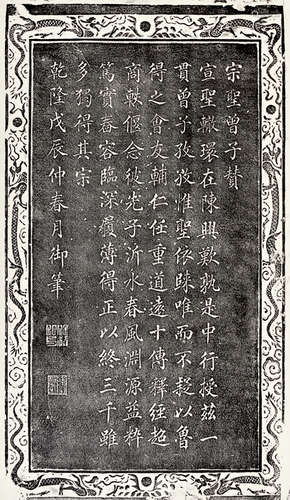 宗聖曾子贊
宣聖轍環在陳興歎孰是中行授茲一
貫曾子孜孜惟聖依歸唯而不疑以魯
得之會友輔仁任重道遠十傳釋經超
商軼偃念彼先子沂水春風淵源益粹
篤實春容臨深履薄得正以終三千雖
多獨得其宗
乾隆戊辰仲春月御筆